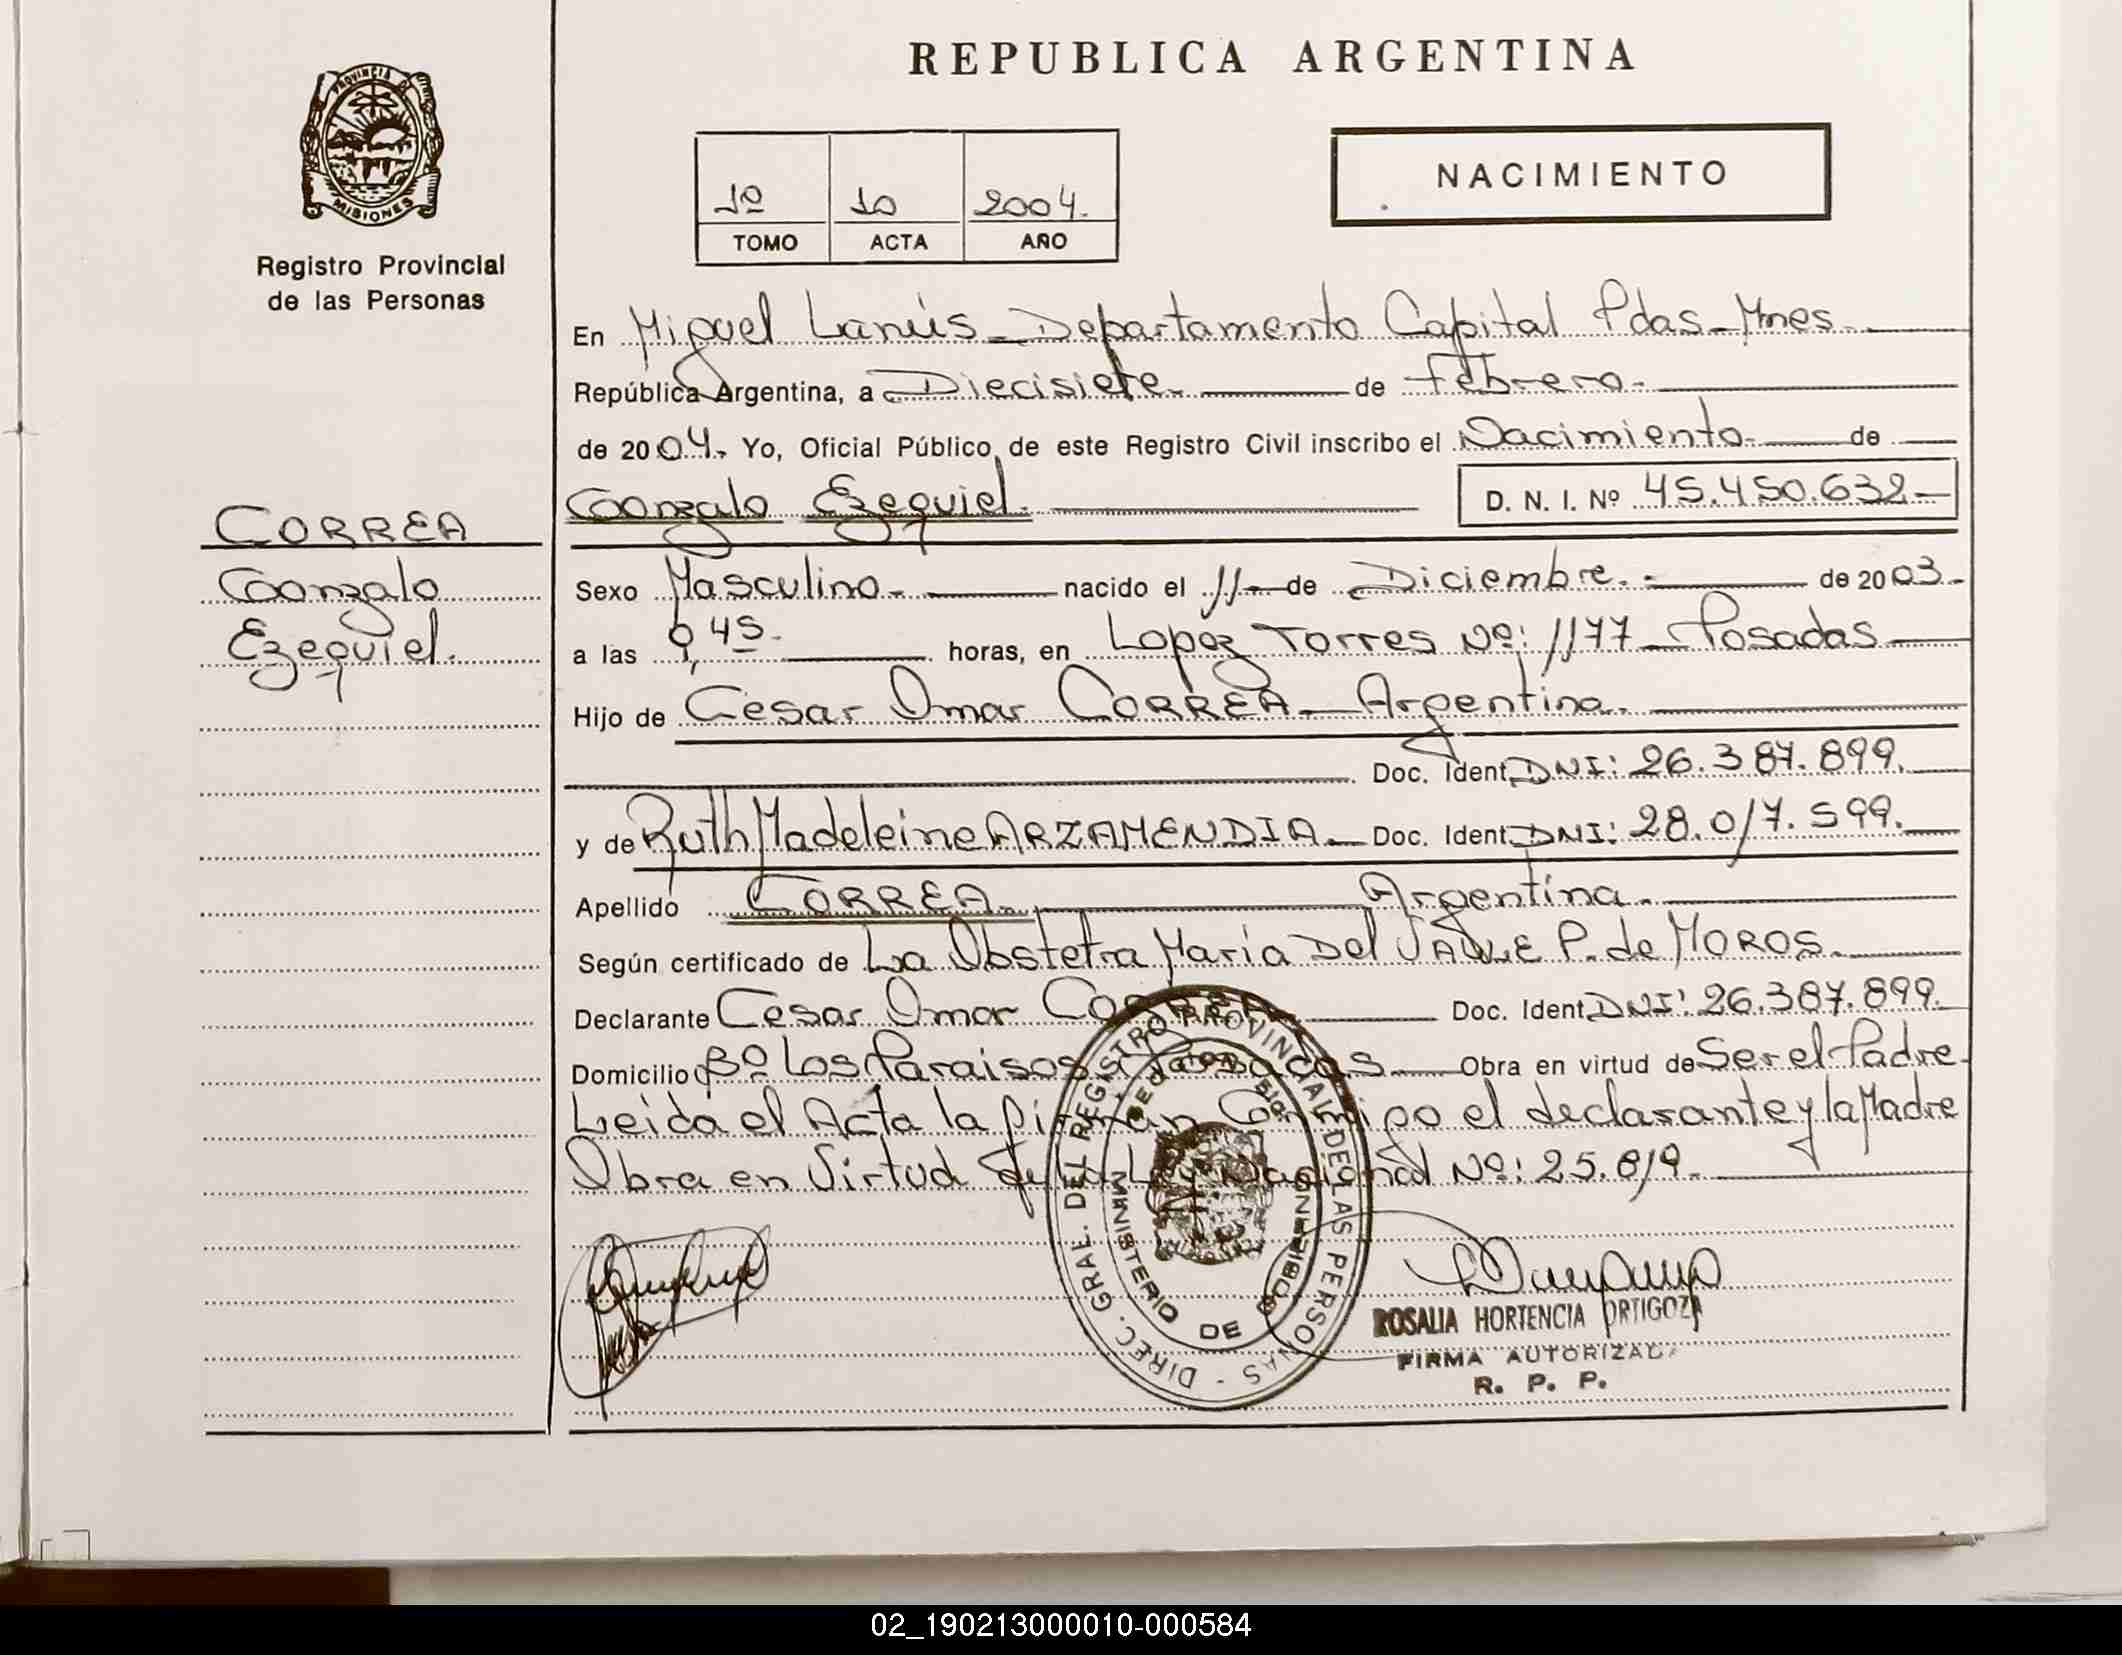 REPUBLICA ARGENTINA
PROVINCIA DE
MISIONES
Registro Provincial
de las Personas
1º 10 2004.
TOMO ACTA AÑO
NACIMIENTO
En Miguel Lanús - Departamento Capital Pdas - Mnes.
República Argentina, a Diecisiete. de Febrero.
de 2004. Yo, Oficial Público de este Registro Civil inscribo el Nacimiento. de
Gonzalo Ezequiel. D. N. I. Nº 45.450.632
CORREA
Gonzalo
Ezequiel.
Sexo Masculino. nacido el 11 de Diciembre. de 2003.
a las 9,45. horas, en Lopez Torres Nº: 1177 - Posadas
Hijo de Cesar Omar CORREA - Argentina.
Doc. Ident. DNI: 26.387.899.
y de Ruth Madeleine ARZAMENDIA. Doc. Ident. DNI: 28.017.599.
Apellido CORREA. Argentina.
Según certificado de La Obstetra Maria Del VALLE P. de MOROS.
Declarante Cesar Omar CORREA Doc. Ident. DNI: 26.387.899.
Domicilio Bº Los Paraisos Posadas Obra en virtud de Ser el Padre.
Leida el Acta la firman Conmigo el declarante y la Madre
Obra en Virtud de la Ley Nacional Nº: 25.819.
DIREC. GRAL. DEL REGISTRO PROVINCIAL DE LAS PERSONAS -
MINISTERIO DE GOBIERNO
ROSALIA HORTENCIA ORTIGOZA
FIRMA AUTORIZADA
R. P. P.
02_190213000010-000584